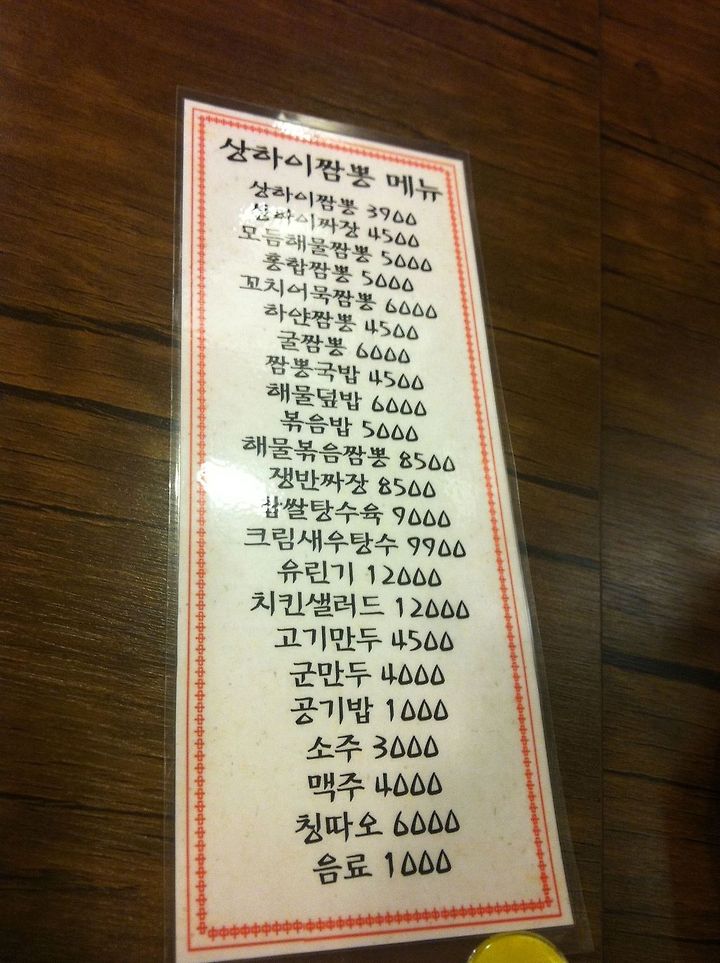 상하이짬뽕 메뉴
상하이짬뽕 3900
상하이짜장 4500
모듬해물짬뽕 5000
홍합짬뽕 5000
꼬치어묵짬뽕 6000
하얀짬뽕 4500
굴짬뽕 6000
짬뽕국밥 4500
해물덮밥 6000
볶음밥 5000
해물볶음짬뽕 8500
쟁반짜장 8500
찹쌀탕수육 9000
크림새우탕수 9900
유린기 12000
치킨샐러드 12000
고기만두 4500
군만두 4000
공기밥 1000
소주 3000
맥주 4000
칭따오 6000
음료 1000